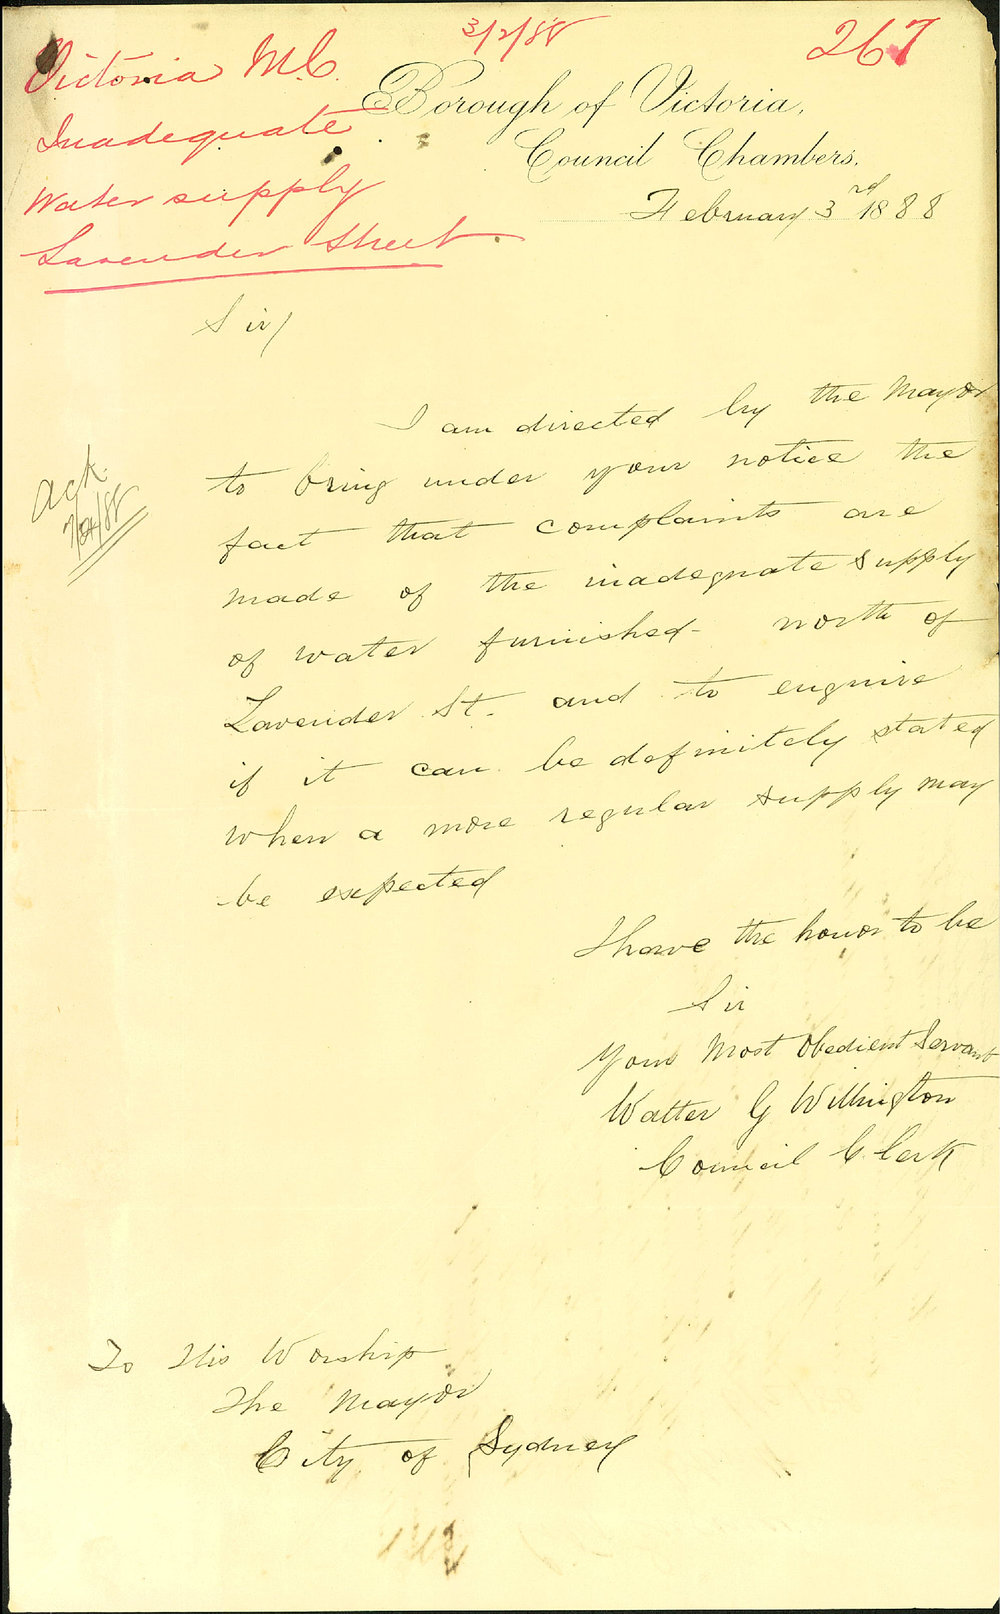 3/2/88
267
Victoria M.C.
Inadequate
Water supply
Lavender Street.
Borough of Victoria,
Council Chambers.
February 3rd 1888
Sir/
I am directed by the Mayor
to bring under your notice the
fact that complaints are
made of the inadequate supply
of water furnished - north of
Lavender St. and to enquire
if it can be definitely stated
when a more regular supply may
be expected
Ack.
7/2/88
I have the honor to be
Sir
Your Most Obedient Servant
Walter G Willington
Council Clerk
To His Worship
The Mayor
City of Sydney